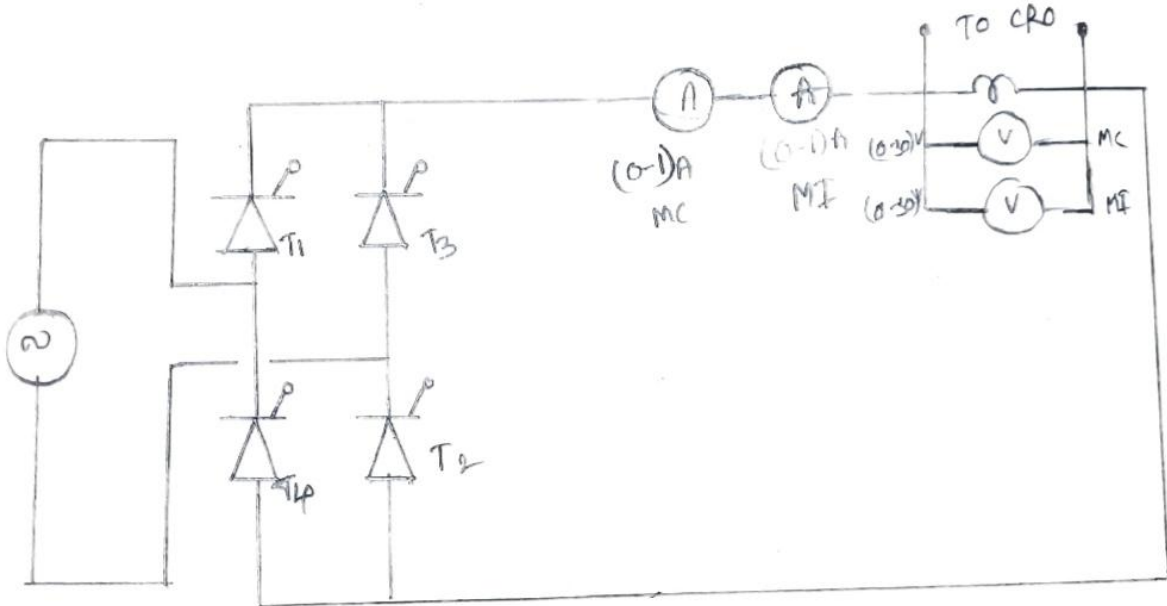 TO CRO
A
A
(0-1)A
MC
(0-1)A
MI
(0-30)V
V
MC
(0-30)V
V
MI
T1
T3
T4
T2